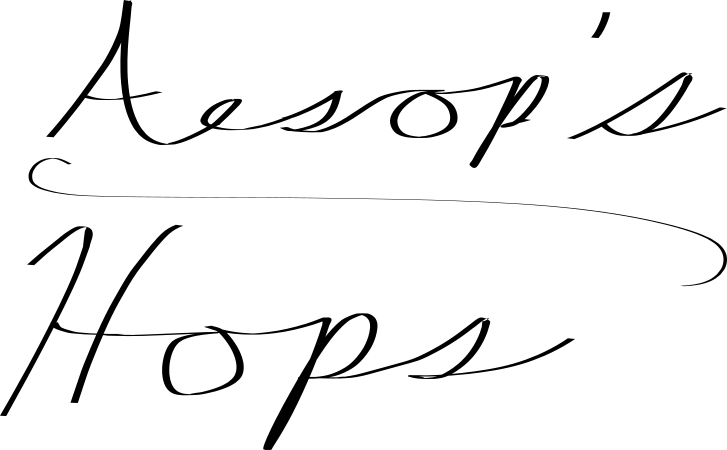 Aesop's
Hops